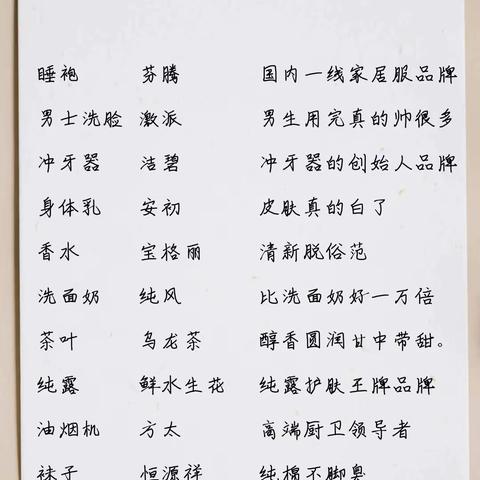 睡袍 芬腾 国内一线家居服品牌
男士洗脸 漖派 男生用完真的帅很多
冲牙器 洁碧 冲牙器的创始人品牌
身体乳 安初 皮肤真的白了
香水 宝格丽 清新脱俗范
洗面奶 纯风 比洗面奶好一万倍
茶叶 乌龙茶 醇香圆润甘中带甜。
纯露 鲜水生花 纯露护肤王牌品牌
油烟机 方太 高端厨卫领导者
袜子 恒源祥 纯棉不脚臭